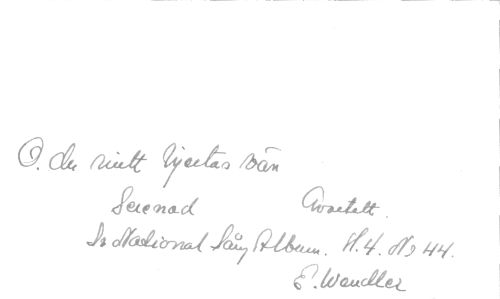 O. du mitt hjertas vän
Serenad Qvartett.
Ss National Sång Album. H.4. No 44.
E. Wendler